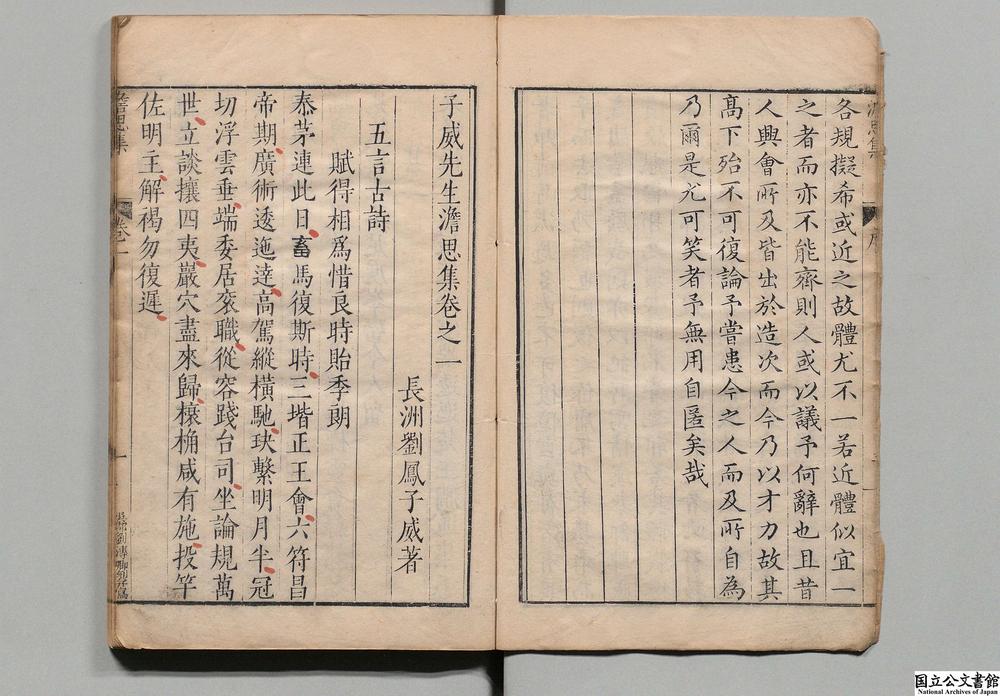 各規擬希或近之故體尤不一若近體似宜一
之者而亦不能齊則人或以議予何辭也且昔
人興會所及皆出於造次而今乃以才力故其
高下殆不可復論予嘗患今之人而及所自為
乃爾是尤可笑者予無用自匿矣哉
子威先生澹思集卷之一
長洲劉鳳子威著
五言古詩
賦得相爲惜良時貽季朗
泰茅連此日畜馬復斯時三堦正王會六符昌
帝期廣術逶迤達高駕縱橫馳玦繫明月半冠
切浮雲垂端委居袞職從容踐台司坐論規萬
世立談攘四夷巖穴盡來歸榱桷咸有施投竿
佐明主解褐勿復遲
澹思集
卷一
一
国立公文書館
National Archives of Japan